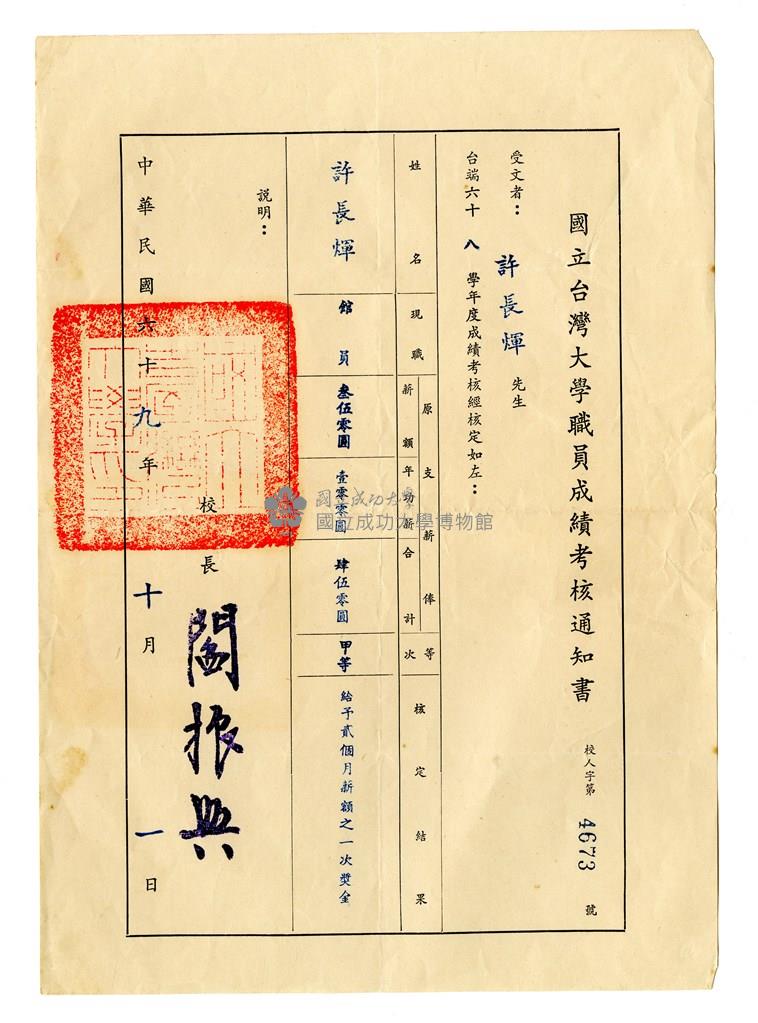 國立台灣大學職員成績考核通知書
校人字第 4673 號
受文者：許長煇 先生
台端六十八學年度成績考核經核定如左：
姓名
現職
原支薪俸
薪額
年功薪
合計
等次
核定結果
許長煇
館員
叁伍零圓
壹零零圓
肆伍零圓
甲等
給予貳個月薪額之一次獎金
說明：
校長 閻振興
中華民國六十九年十月一日
國立成功大學
國立成功大學博物館